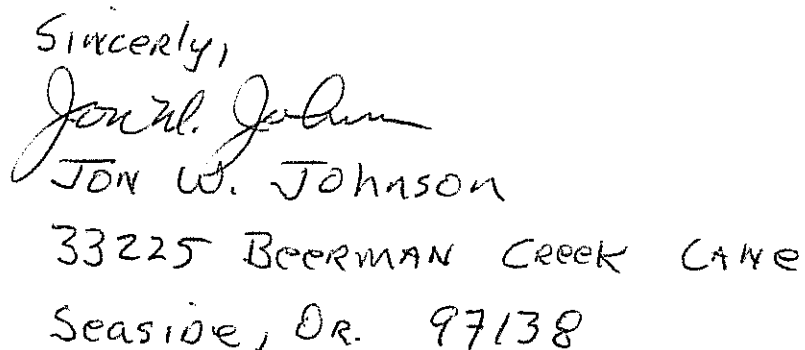 Sincerly,
Jon W. Johnson
JON W. Johnson
33225 BeeRMAN CReek LANe
Seaside, OR. 97138